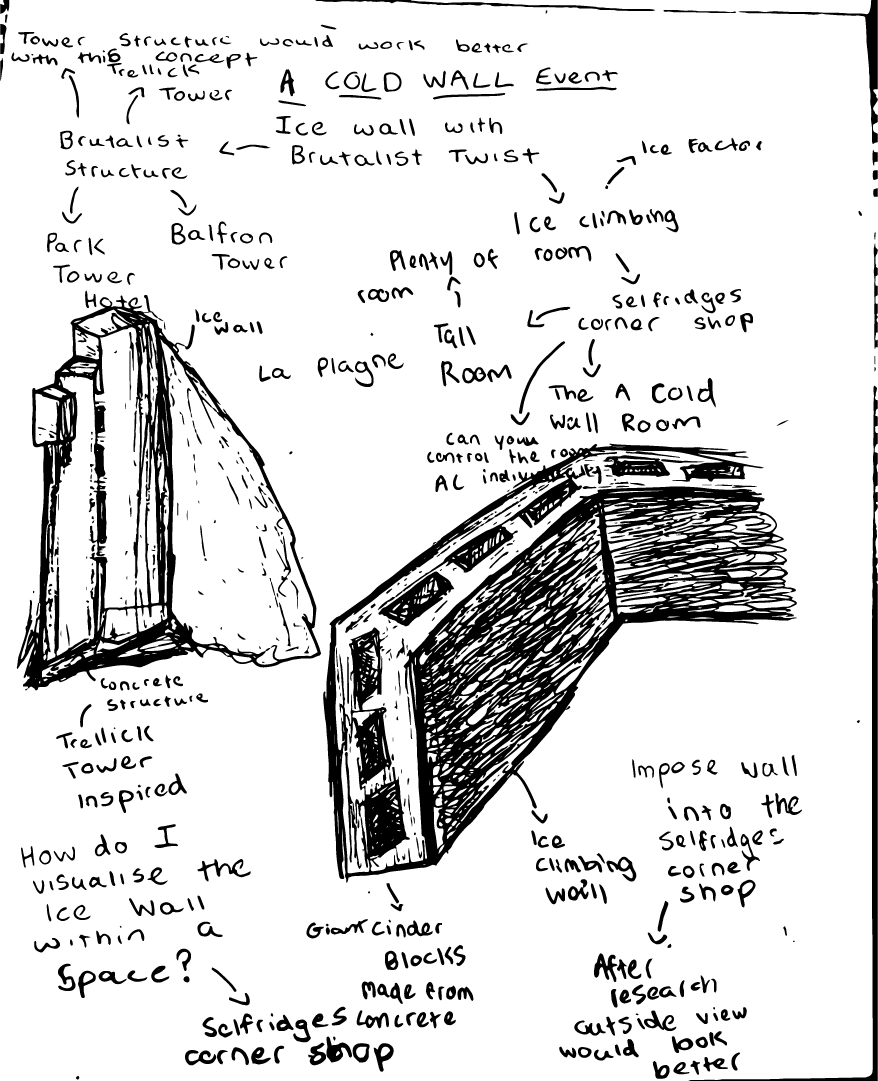 Tower Structure would work better
with this concept
Trellick
Tower
A COLD WALL Event
Ice wall with
Brutalist Twist
Brutalist
Structure
Ice Factor
Park
Tower
Hotel
Balfron
Tower
Ice climbing
room
Plenty of
room
Selfridges
corner shop
Ice
wall
Tall
Room
La Plagne
The A Cold
Wall Room
Can you
control the room
AC individually
Concrete
Structure
Trellick
Tower
Inspired
Impose wall
into the
Selfridges
corner
shop
Ice
climbing
wall
How do I
visualise the
Ice Wall
within a
Space?
Giant cinder
Blocks
made from
concrete
Selfridges
corner shop
After
research
outside view
would look
better